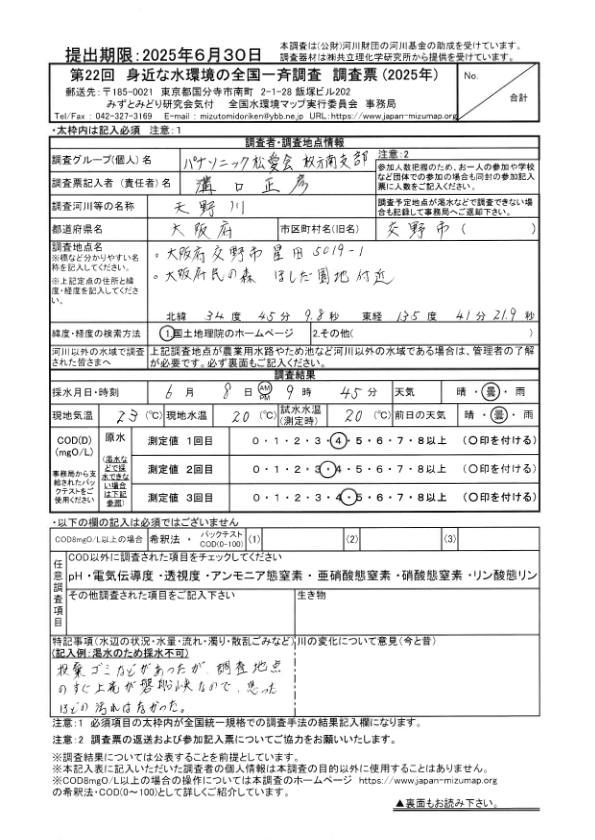 提出期限:2025年6月30日
本調査は(公財)河川財団の河川基金の助成を受けています。
調査器材は㈱共立理化学研究所から提供を受けています。
第22回 身近な水環境の全国一斉調査 調査票(2025年)
郵送先:〒185-0021 東京都国分寺市南町 2-1-28 飯塚ビル202
みずとみどり研究会気付 全国水環境マップ実行委員会 事務局
Tel/Fax : 042-327-3169 E-mail : mizutomidoriken@ybb.ne.jp URL:https://www.japan-mizumap.org
No.
合計
・太枠内は記入必須 注意:1
調査者・調査地点情報
調査グループ(個人)名 パナソニック松愛会 枚方南支部
注意:2
参加人数把握のため、お一人の参加や学校など団体での参加の場合も同封の参加記入票に人数をご記入ください。
調査票記入者(責任者)名 溝口正彦
調査河川等の名称 天野川
調査予定地点が渇水などで調査できない場合も記録して事務局へご返却下さい。
都道府県名 大阪府 市区町村名(旧名) 交野市( )
調査地点名
※橋など分かりやすい名称を記入してください。
※上記定点の住所と緯度・経度を記入してください。
。大阪府交野市星田5019-1
。大阪府民の森 ほしだ園地付近
北緯 34度 45分 9.8秒 東経 135度 41分 21.9秒
緯度・経度の検索方法 1.国土地理院のホームページ 2.その他( )
河川以外の水域で調査された皆さまへ
上記調査地点が農業用水路やため池など河川以外の水域である場合は、管理者の了解が必要です。必ず裏面もご記入ください。
調査結果
採水月日・時刻 6月 8日 AM PM 9時 45分 天気 晴・曇・雨
現地気温 23(℃) 現地水温 20(℃) 試水水温(測定時) 20(℃) 前日の天気 晴・曇・雨
COD(D)
(mgO/L)
事務局から支給されたパックテストをご使用ください
原水
(渇水などで採水できない場合は下記参照)
測定値 1回目 0・1・2・3・4・5・6・7・8以上 (〇印を付ける)
測定値 2回目 0・1・2・3・4・5・6・7・8以上 (〇印を付ける)
測定値 3回目 0・1・2・3・4・5・6・7・8以上 (〇印を付ける)
・以下の欄の記入は必須ではございません
COD8mgO/L以上の場合 希釈法 ・ パックテスト COD(0-100) (1) (2) (3)
任意調査項目
COD以外に調査された項目をチェックしてください
pH・電気伝導度・透視度・アンモニア態窒素・亜硝酸態窒素・硝酸態窒素・リン酸態リン
その他調査された項目をご記入下さい
生き物
特記事項(水辺の状況・水量・流れ・濁り・散乱ごみなど)
川の変化について意見(今と昔)
(記入例:渇水のため採水不可)
投棄ゴミなどがあったが、調査地点
のすぐ上流が磐船峡なので、思った
ほどの汚れはなかった。
注意:1 必須項目の太枠内が全国統一規格での調査手法の結果記入欄になります。
注意:2 調査票の返送および参加記入票についてご協力をお願いいたします。
※調査結果については公表することを前提としています。
※本記入表に記入いただいた調査者の個人情報は本調査の目的以外に使用することはありません。
※COD8mgO/L以上の場合の操作については本調査のホームページ https://www.japan-mizumap.org
の希釈法・COD(0～100)として詳しくご紹介しています。
▲裏面もお読み下さい。